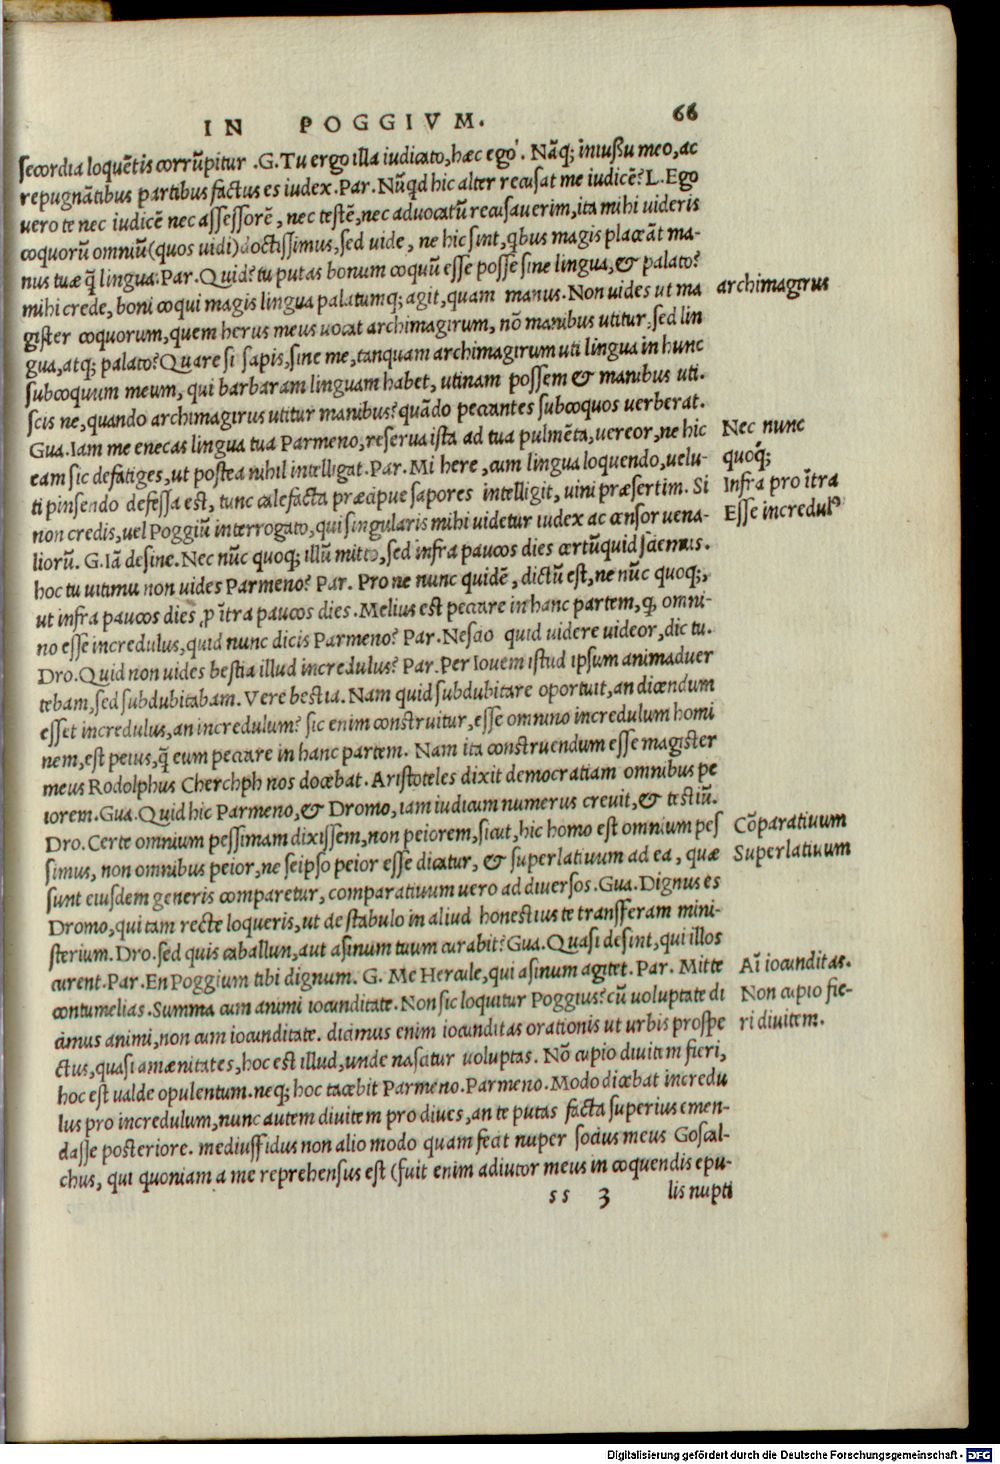 IN POGGIVM. 66
secordia loquētis corrūpitur .G.Tu ergo illa iudicato,hæc ego. Nāq; iniussu meo,ac
repugnātibus partibus factus es iudex.Par.Nūqd hic alter recusat me iudicē?L.Ego
uero te nec iudicē nec assessorē, nec testē,nec aduocatū recusauerim,ita mihi uideris
coquorū omniū(quos uidi)doctissimus,sed uide, ne hic sint,qbus magis placeāt ma-
nus tuæ q̄ lingua.Par.Quid?tu putas bonum coquū esse posse sine lingua,& palato?
mihi crede, boni coqui magis lingua palatumq; agit,quam manus.Non uides ut ma
gister coquorum,quem herus meus uocat archimagirum, nō manibus utitur,sed lin
gua,atq; palato?Quare si sapis,sine me,tanquam archimagirum uti lingua in hunc
subcoquum meum, qui barbaram linguam habet, utinam possem & manibus uti.
scis ne,quando archimagirus utitur manibus?quādo peccantes subcoquos uerberat.
Gua.Iam me enecas lingua tua Parmeno,reserua ista ad tua pulmēta,uereor,ne hic
eam sic defatiges,ut postea nihil intelligat.Par.Mi here,cum lingua loquendo,uelu-
ti pinsendo defessa est, tunc calefacta præcipue sapores intelligit, uini præsertim. Si
non credis,uel Poggiū interrogato,qui singularis mihi uidetur iudex ac censor uena-
liorū. G.Iā desine.Nec nūc quoq; illū mitto,sed infra paucos dies certūquid sciemus.
hoc tu uitimu non uides Parmeno? Par. Pro ne nunc quidē, dictū est,ne nūc quoq;,
ut infra paucos dies ꝓ ītra paucos dies.Melius est peccare in hanc partem,q̄ omni-
no esse incredulus,quid nunc dicis Parmeno? Par.Nescio quid uidere uideor,dic tu.
Dro.Quid non uides bestia illud incredulus?Par.Per Iouem istud ipsum animaduer
tebam,sed subdubitabam. Vere bestia. Nam quid subdubitare oportuit,an dicendum
esset incredulus,an incredulum? sic enim construitur,esse omnino incredulum homi
nem,est peius,q̄ eum peccare in hanc partem. Nam ita construendum esse magister
meus Rodolphus Cherchph nos docebat.Aristoteles dixit democratiam omnibus pe
iorem.Gua.Quid hic Parmeno,& Dromo,iam iudicum numerus creuit,& testiū.
Dro.Certe omnium pessimam dixissem,non peiorem,sicut,hic homo est omnium pes
simus, non omnibus peior,ne seipso peior esse dicatur, & superlatiuum ad ea, quæ
sunt eiusdem generis comparetur, comparatiuum uero ad diuersos.Gua.Dignus es
Dromo,qui tam recte loqueris,ut de stabulo in aliud honestius te transferam mini-
sterium.Dro.sed quis caballum,aut asinum tuum curabit?Gua.Quasi desint,qui illos
curent.Par.En Poggium tibi dignum. G. Me Hercule,qui asinum agitet.Par. Mitte
contumelias.Summa cum animi iocunditate.Non sic loquitur Poggius?cū uoluptate di
cimus animi,non cum iocunditate. dicimus enim iocunditas orationis ut urbis prospe
ctus,quasi amænitates,hoc est illud,unde nascitur uoluptas. Nō cupio diuitem fieri,
hoc est ualde opulentum.neq; hoc tacebit Parmeno.Parmeno.Modo dicebat incredu
lus pro incredulum,nunc autem diuitem pro diues,an te putas facta superius emen-
dasse posteriore. mediusfidus non alio modo quam fecit nuper socius meus Goscal-
chus, qui quoniam a me reprehensus est (fuit enim adiutor meus in coquendis epu-
ss 3 lis nupti
archimagirus
Nec nunc
quoq;
Infra pro ītra
Esse incredulꝰ
Cōparatiuum
Superlatiuum
Aī iocunditas.
Non cupio fie-
ri diuitem.
Digitalisierung gefördert durch die Deutsche Forschungsgemeinschaft - DFG